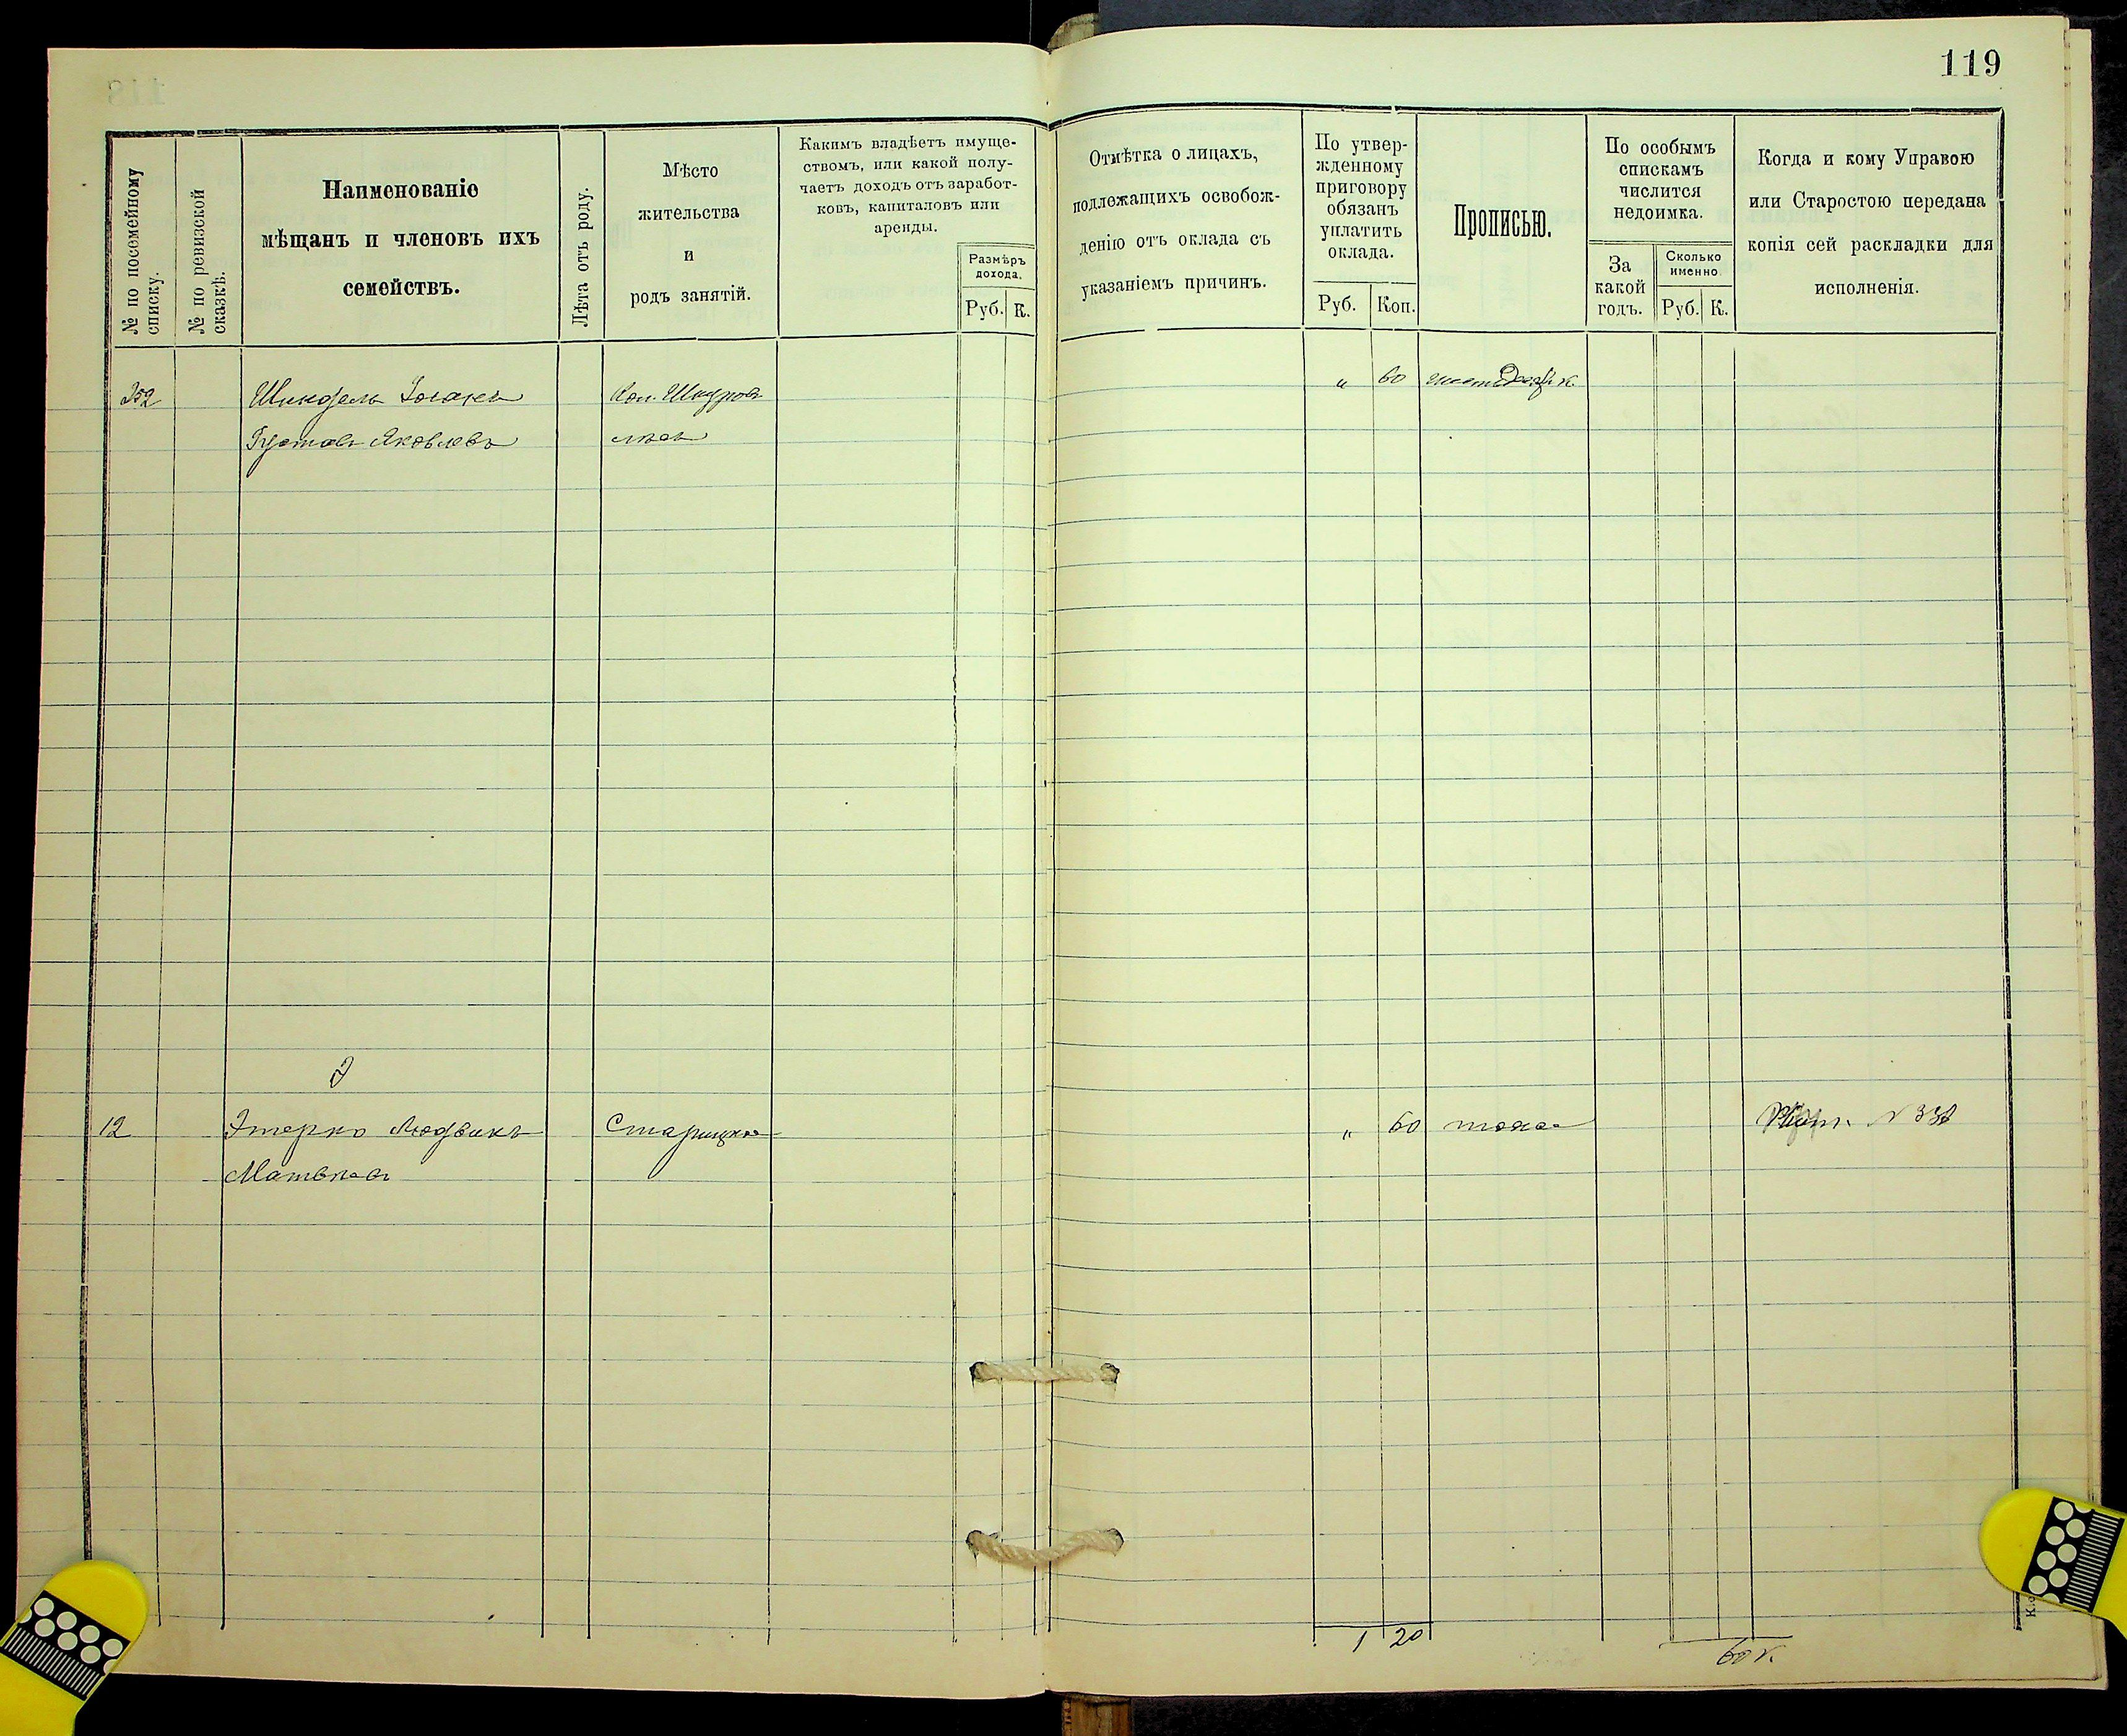 119
№ по посемейному
списку.
№ по ревизской
сказкѣ.
Наименованіе
мѣщанъ и членовъ ихъ
семействъ.
Лѣта отъ роду.
Мѣсто
жительства
и
родъ занятій.
Какимъ владѣетъ имуще-
ствомъ, или какой полу-
чаетъ доходъ отъ заработ-
ковъ, капиталовъ или
аренды.
Размѣръ
дохода.
Руб. К.
Отмѣтка о лицахъ,
подлежащихъ освобож-
денію отъ оклада съ
указаніемъ причинъ.
По утвер-
жденному
приговору
обязанъ
уплатить
оклада.
Руб. Коп.
Прописью.
По особымъ
спискамъ
числится
недоимка.
За
какой
годъ.
Сколько
именно.
Руб. К.
Когда и кому Управою
или Старостою передана
копія сей раскладки для
исполненія.
352 Шиндель " 60
Густавъ Яковлевъ
Э
12 Этерко Людвикъ " 60 тоже
Матвѣевъ
1 20
60 к.